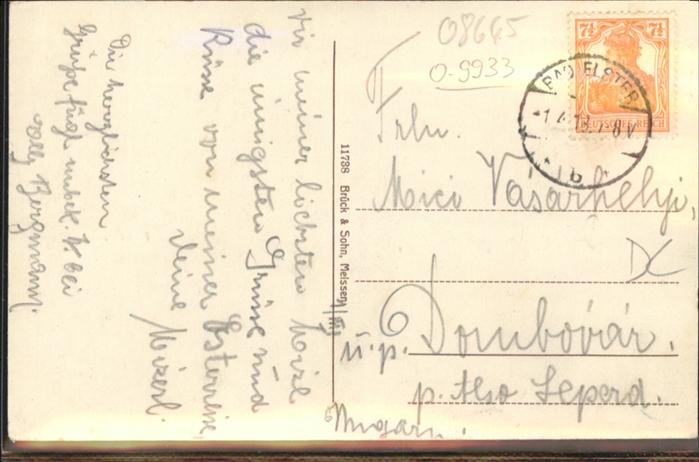 Vir meiner liebsten Mizel
die innigsten Grüsse und
Küsse von meiner Osterreise
Deine Mizerl.
Die herzlichsten
Grüße fügt unbek. W. bei
Bergmann.
11738 Brück & Sohn, Meissen
08645
0-9933
7½ 7½
DEUTSCHES REICH
BAD ELSTER
1.4.18.7-8V
b
Frln.
Mici Vásárhelyi,
u.p. Dombóvár.
p. Also Leperd.
Ungarn.